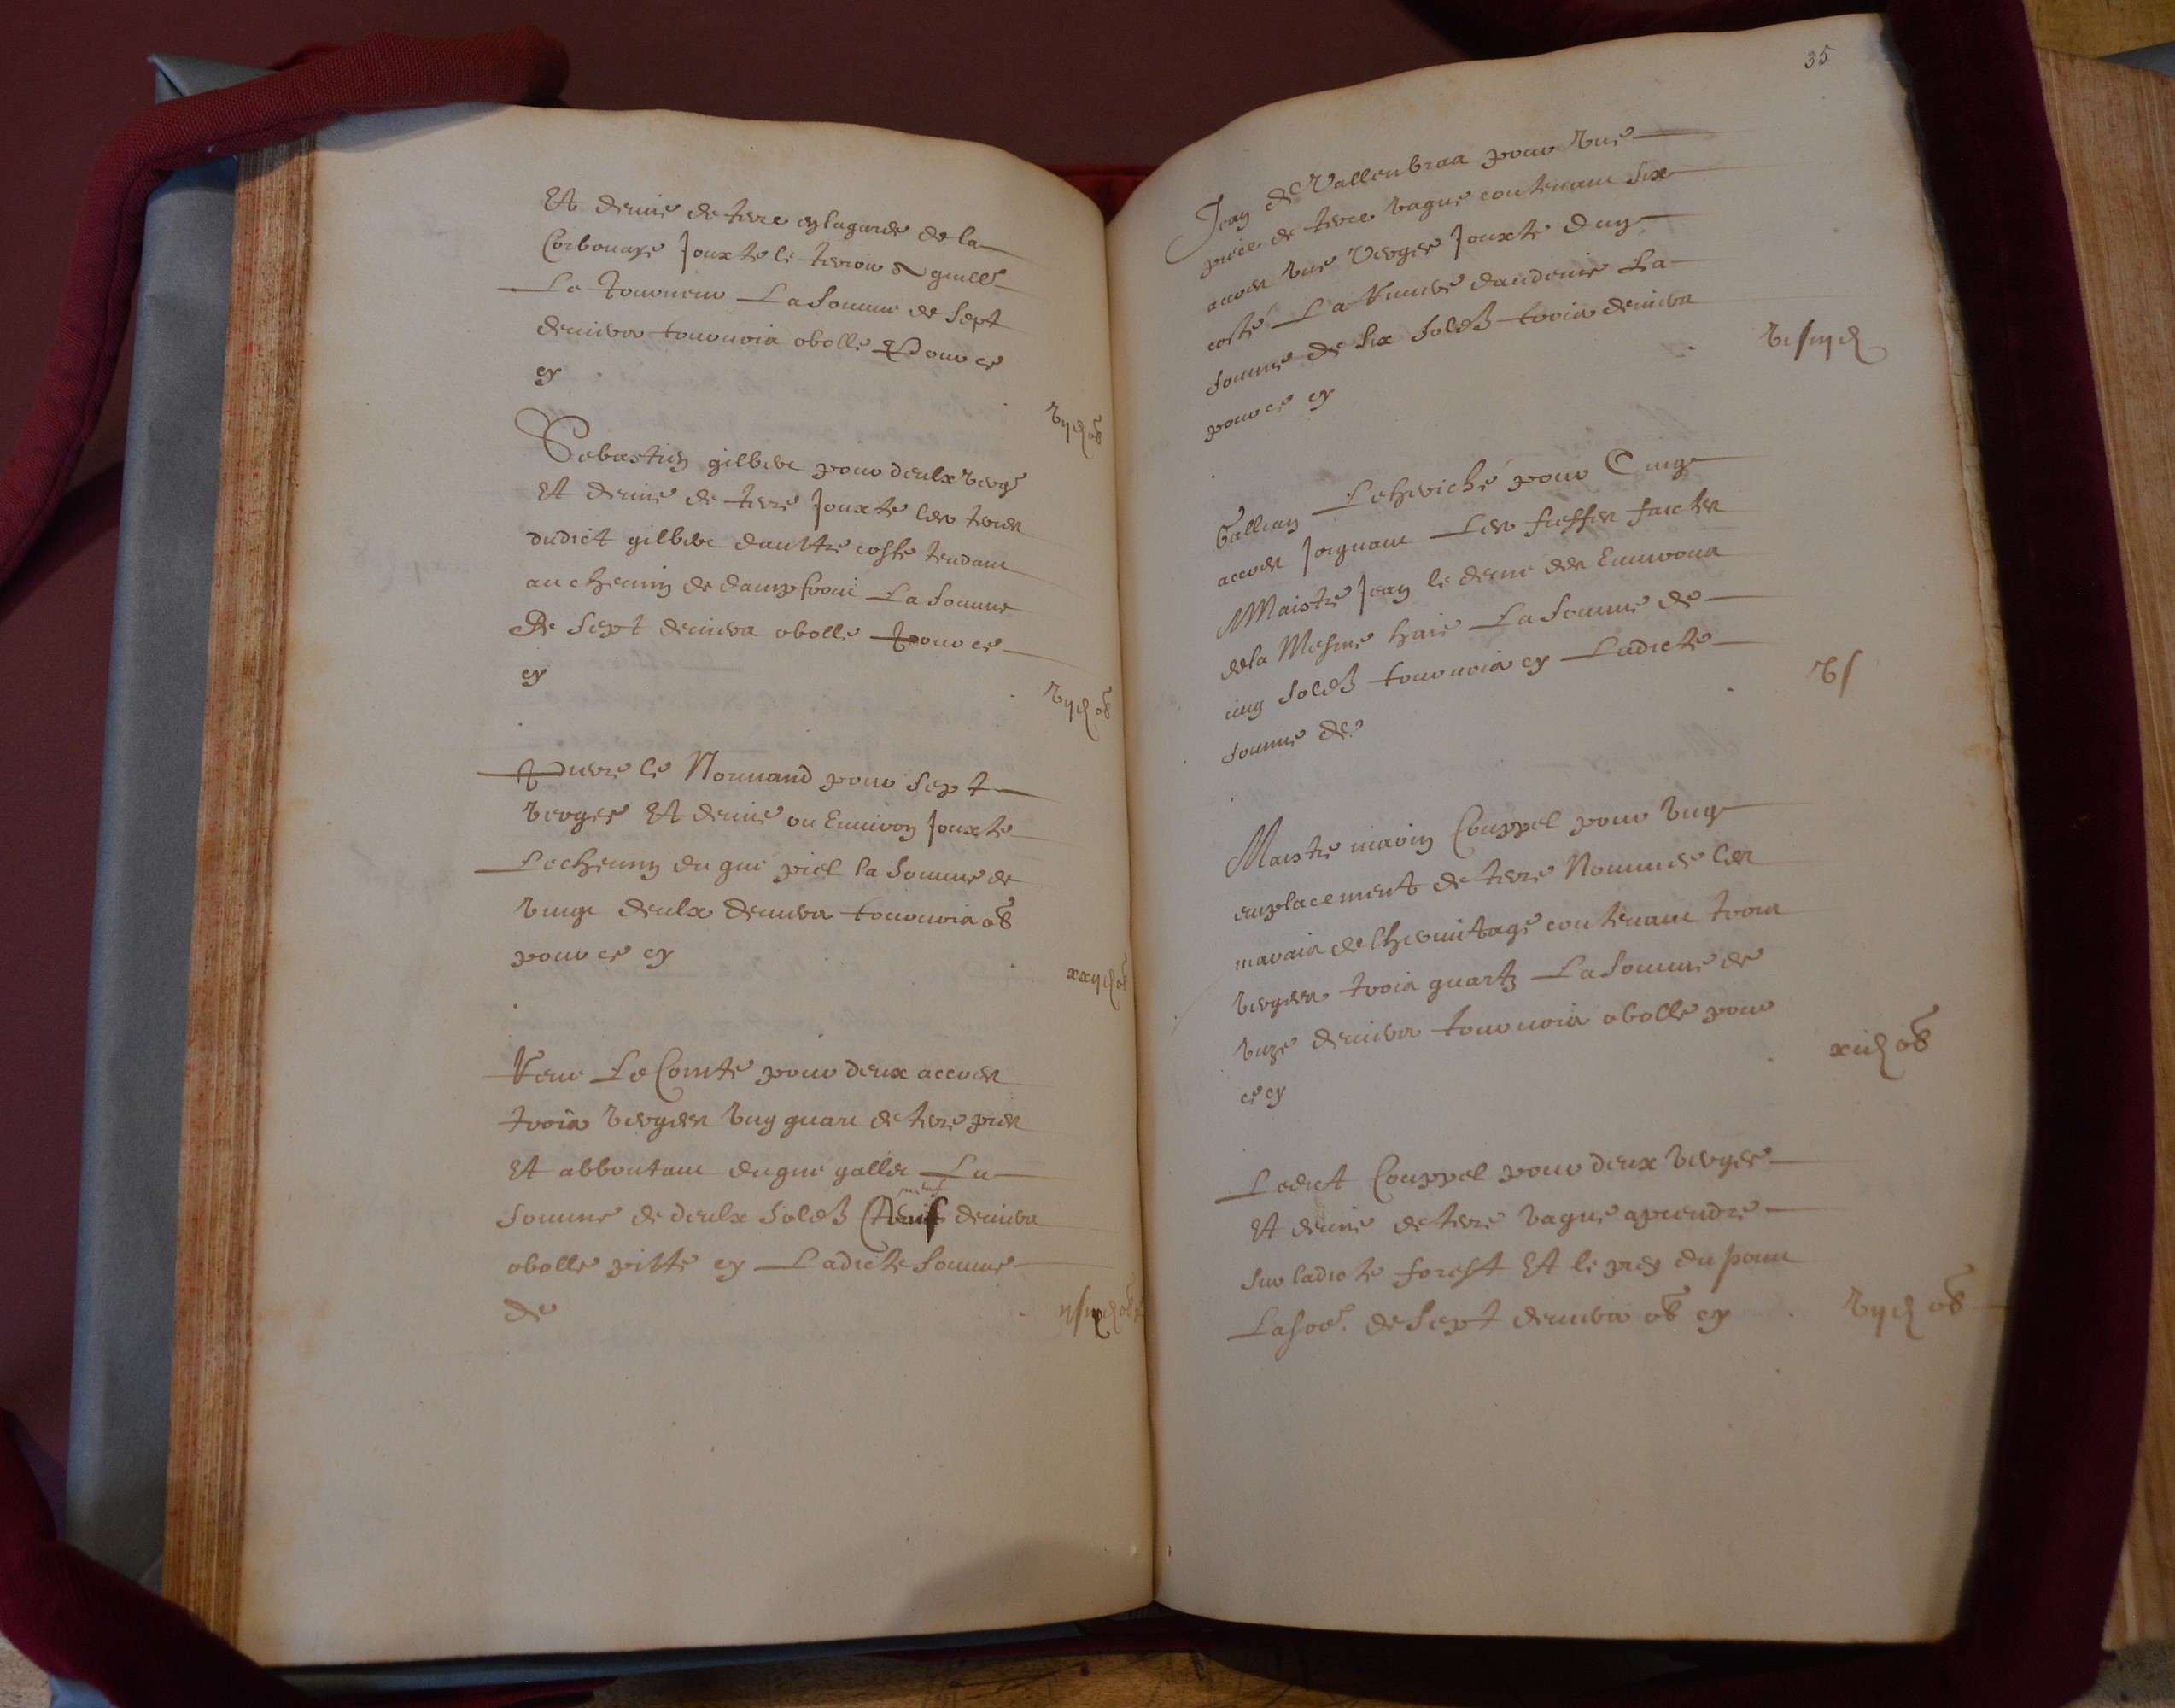 Et demie de terre en la garde de la
Corbonaye Jouxte le terroir de guille
Le Tourneur La Somme de Sept
deniers tournois obolle Pour ce
cy
vij d ob
Sebastien gilbert pour deulx verg
Et demie de terre Jouxte les terres
dudict gilbert daultre coste tendant
au chemin de dampfront La Somme
De Sept deniers obolle Pour ce
cy
vij d ob
Pierre le Normand pour Sept
verges Et demie ou Environ Jouxte
Le chemin du gue piel la Somme de
vingt deulx deniers tournois ob
pour ce cy
xxij d ob
Rene Le Comte pour deux accres
trois verges ung quart de terre pres
Et abboutant du gue galler La
Somme de deulx Soldz deniers
obolle pitte cy Ladicte Somme
de
35
Jean de Vallenbras pour une
piece de terre vague contenant Six
accres une verge Jouxte dung
coste La Veufve dandenie La
Somme de Six Soldz trois deniers
pour ce cy
vj s iij d
Gallian Leheriché pour Cinq
accres Joignant Les fieffes faictes
Maistre Jean le deme des Environs
de la Mesme haie La Somme de
cinq Soldz tournois cy Ladicte
Somme de
v s
Maistre marin Couppel pour ung
emplacement de terre Nommée les
marais de lhermitage contenant trois
verges trois quartz La Somme de
unze deniers tournois obolle pour
ce cy
xi d ob
Ledict Couppel pour deux verges
Et demie de terre vague aprendre
Sur ladicte forest Et le prey du pont
La so.e de Sept deniers ob cy
vij d ob